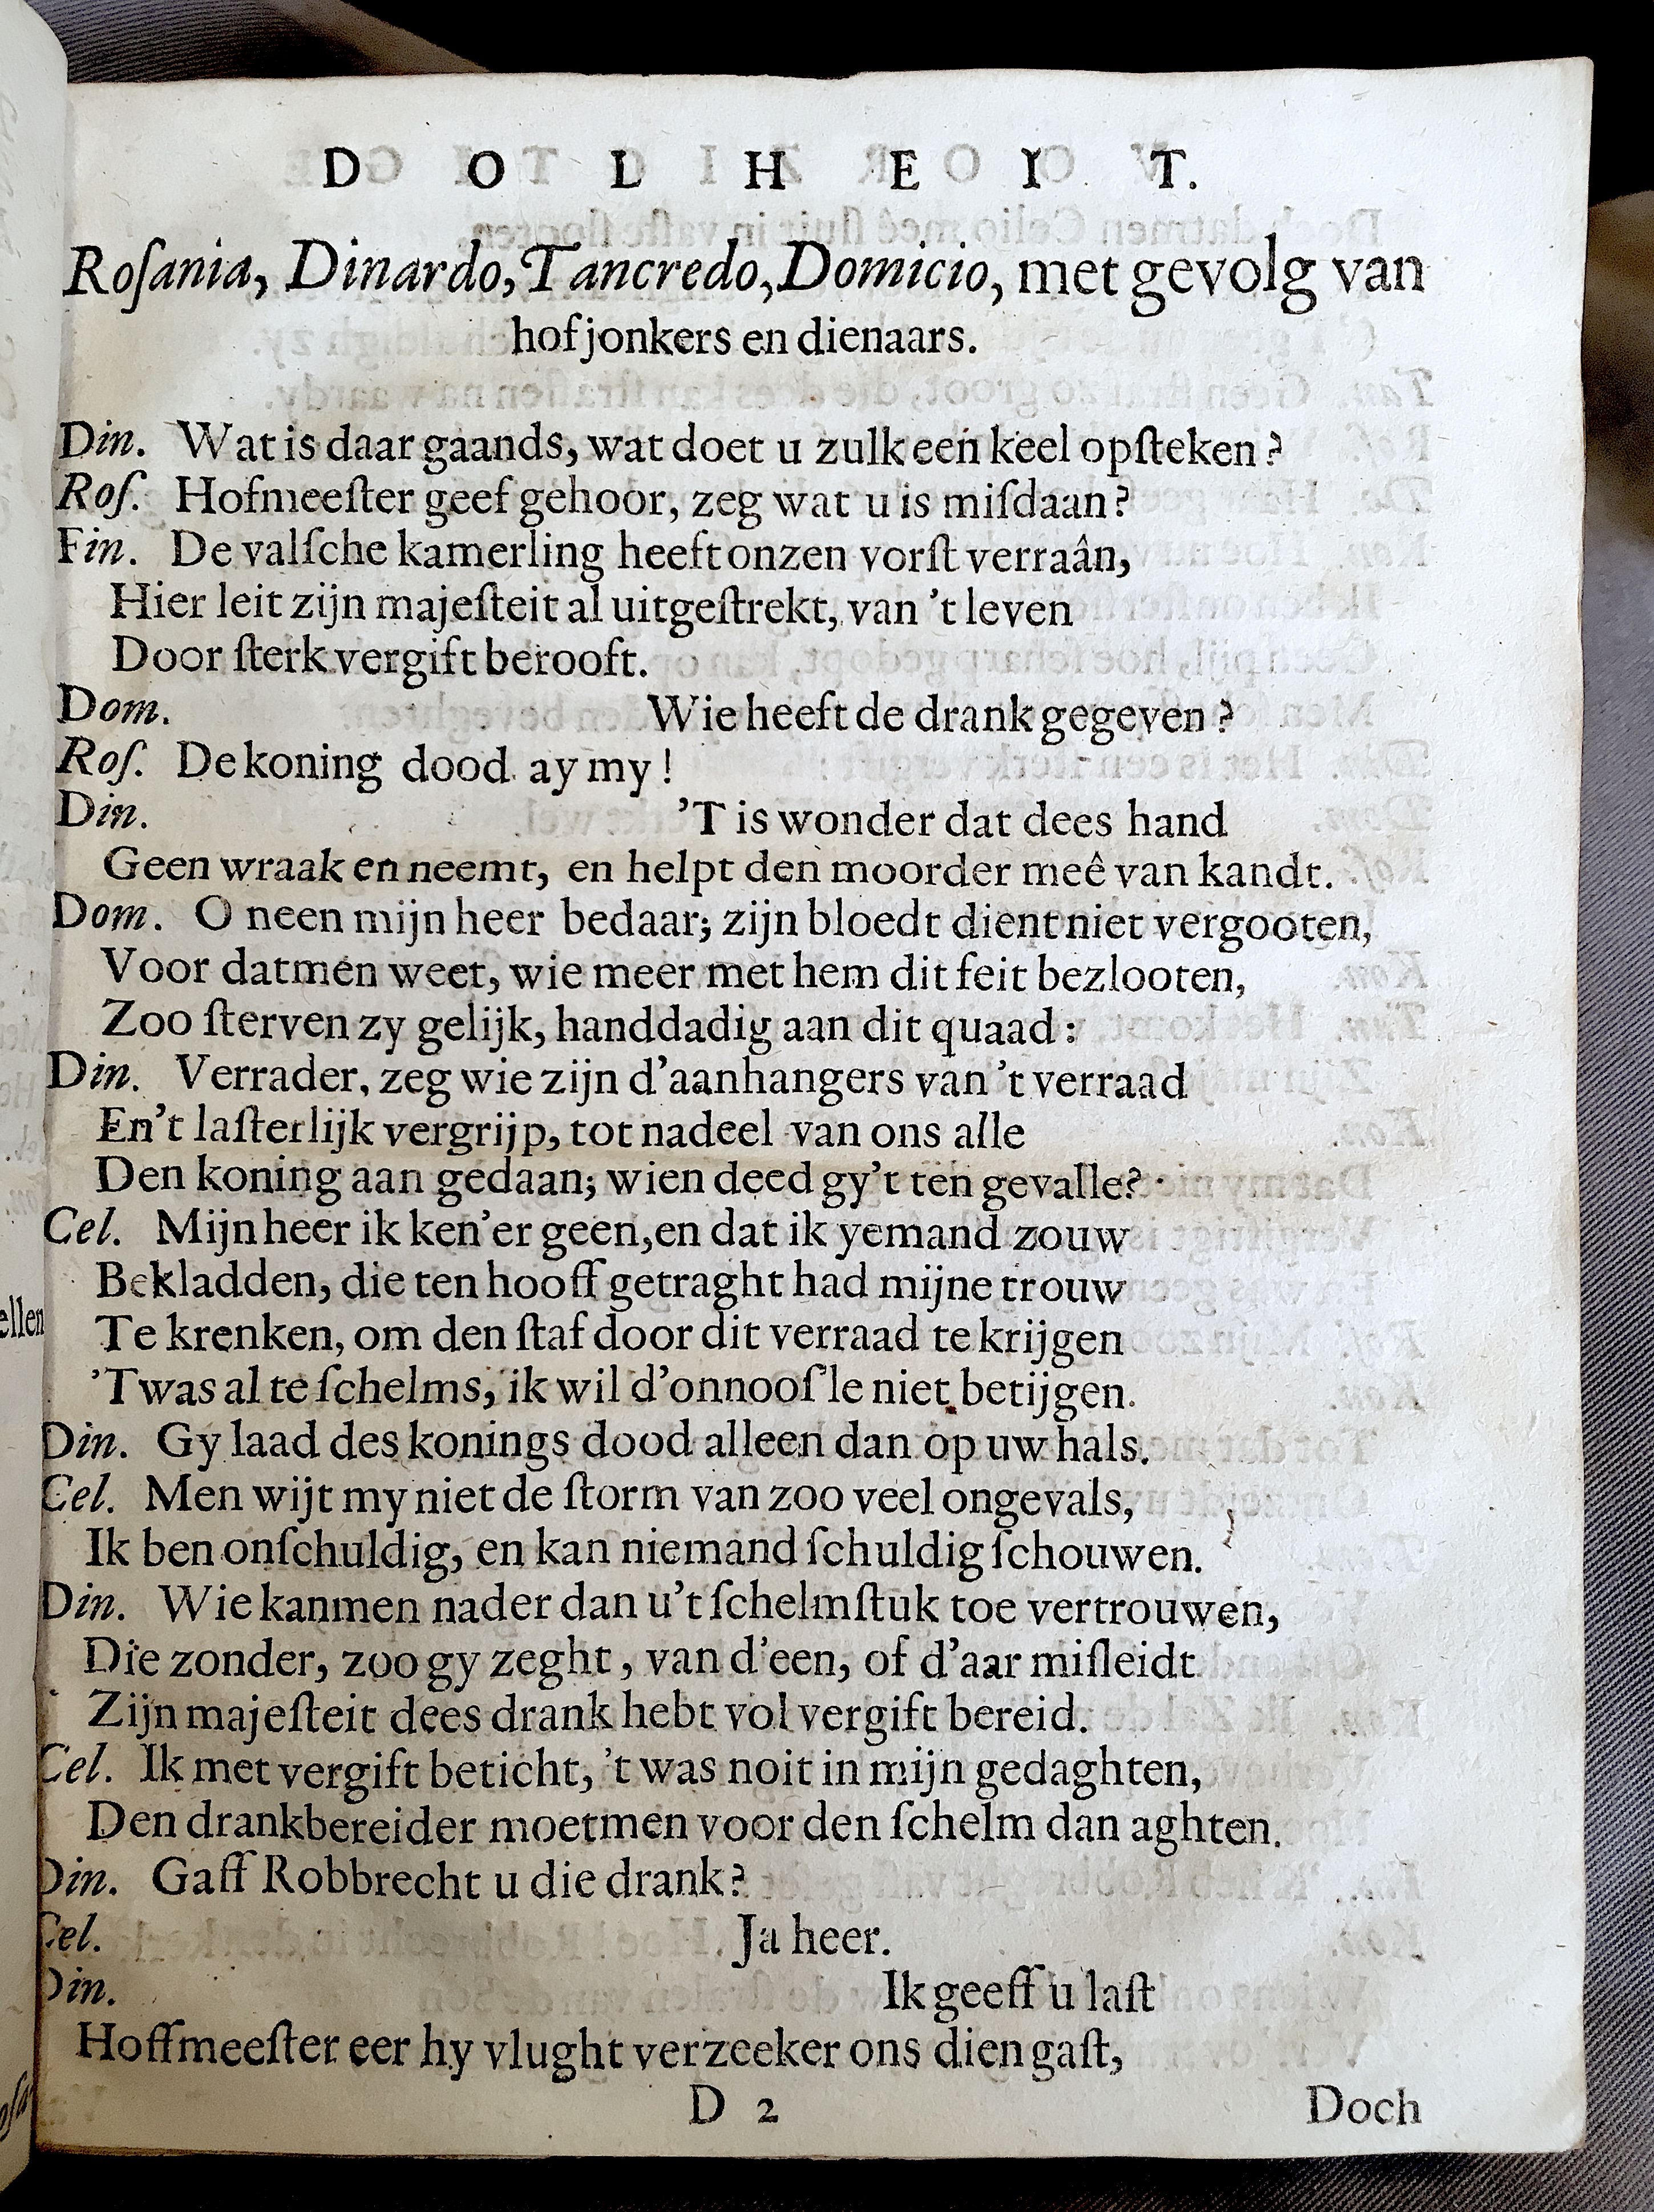 D O L H E I T.
Roſania, Dinardo, Tancredo, Domicio, met gevolg van
hofjonkers en dienaars.
Din. Wat is daar gaands, wat doet u zulk een keel opſteken?
Roſ. Hofmeeſter geef gehoor, zeg wat u is miſdaan?
Fin. De valſche kamerling heeft onzen vorſt verraân,
Hier leit zijn majeſteit al uitgeſtrekt, van 't leven
Door ſterk vergift berooft.
Dom. Wie heeft de drank gegeven?
Roſ. De koning dood ay my!
Din. 'T is wonder dat dees hand
Geen wraak en neemt, en helpt den moorder meê van kandt.
Dom. O neen mijn heer bedaar; zijn bloedt dient niet vergooten,
Voor datmen weet, wie meer met hem dit feit bezlooten,
Zoo ſterven zy gelijk, handdadig aan dit quaad:
Din. Verrader, zeg wie zijn d'aanhangers van 't verraad
En't laſterlijk vergrijp, tot nadeel van ons alle
Den koning aan gedaan; wien deed gy't ten gevalle?
Cel. Mijn heer ik ken'er geen, en dat ik yemand zouw
Bekladden, die ten hooff getraght had mijne trouw
Te krenken, om den ſtaf door dit verraad te krijgen
'Twas al te ſchelms, ik wil d'onnooſ'le niet betijgen.
Din. Gy laad des konings dood alleen dan op uw hals.
Cel. Men wijt my niet de ſtorm van zoo veel ongevals,
Ik ben onſchuldig, en kan niemand ſchuldig ſchouwen.
Din. Wie kanmen nader dan u't ſchelmſtuk toe vertrouwen,
Die zonder, zoo gy zeght, van d'een, of d'aar miſleidt
Zijn majeſteit dees drank hebt vol vergift bereid.
Cel. Ik met vergift beticht, 't was noit in mijn gedaghten,
Den drankbereider moetmen voor den ſchelm dan aghten.
Din. Gaff Robbrecht u die drank?
Cel. Ja heer.
Din. Ik geeff u laſt
Hoffmeeſter eer hy vlught verzeeker ons dien gaſt,
D 2 Doch